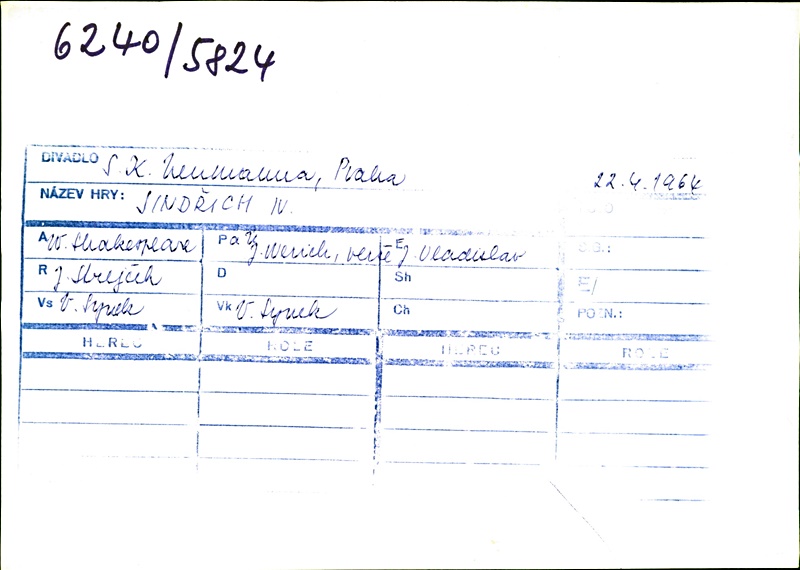 6240/5824
DIVADLO S. K. Neumanna, Praha 22.4.1964
NÁZEV HRY: JINDŘICH IV.
A W. Shakespeare P a Ú J. Werich, verše J. Vladislav E
R J. Strejček D Sh E/
Vs V. Synek Vk V. Synek Ch POZN.:
HEREC ROLE HEREC ROLE